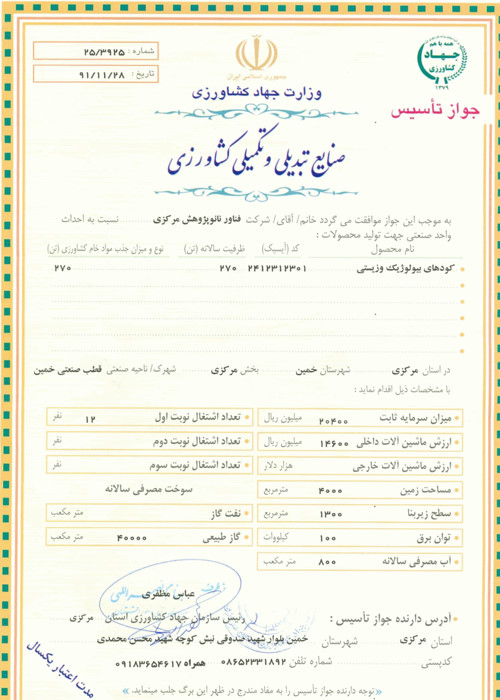 همه با هم
جهاد
کشاورزی
۱۳۷۹
جمهوری اسلامی ایران
شماره : ۲۵/۳۹۲۵
تاریخ : ۹۱/۱۱/۲۸
وزارت جهاد کشاورزی
جواز تأسیس
صنایع تبدیلی و تکمیلی کشاورزی
به موجب این جواز موافقت می گردد خانم/ آقای/ شرکت فناور نانوپژوهش مرکزی نسبت به احداث
واحد صنعتی جهت تولید محصولات :
نام محصول کد (آیسیک) ظرفیت سالانه (تن) نوع و میزان جذب مواد خام کشاورزی (تن)
کودهای بیولوژیک وزیستی ۲۴۱۲۳۱۲۳۰۱ ۲۷۰ ۲۷۰
در استان مرکزی شهرستان خمین بخش مرکزی شهرک/ ناحیه صنعتی قطب صنعتی خمین
با مشخصات ذیل اقدام نماید :
میزان سرمایه ثابت ۲۰۴۰۰ میلیون ریال
ارزش ماشین آلات داخلی ۱۴۶۰۰ میلیون ریال
ارزش ماشین آلات خارجی هزار دلار
مساحت زمین ۴۰۰۰ مترمربع
سطح زیربنا ۱۳۰۰ مترمربع
توان برق ۱۰۰ کیلووات
آب مصرفی سالانه ۸۰۰ متر مکعب
تعداد اشتغال نوبت اول ۱۲ نفر
تعداد اشتغال نوبت دوم نفر
تعداد اشتغال نوبت سوم نفر
سوخت مصرفی سالانه
نفت گاز متر مکعب
گاز طبیعی ۴۰۰۰۰ متر مکعب
عباس مظفری
رئیس سازمان جهاد کشاورزی استان مرکزی
آدرس دارنده جواز تأسیس :
استان مرکزی شهرستان خمین بلوار شهید صدوقی نبش کوچه شهید محسن محمدی
کدپستی شماره تلفن ۰۸۶۵۲۳۳۱۸۹۲ همراه ۰۹۱۸۳۶۵۴۶۱۷
توجه دارنده جواز تأسیس را به مفاد مندرج در ظهر این برگ جلب مینماید.
مدت اعتبار یکسال